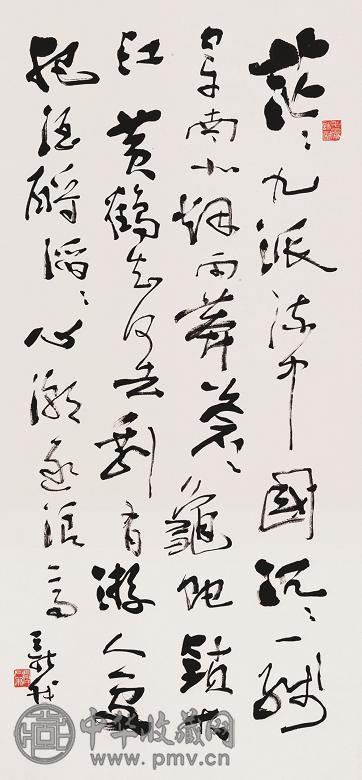 茫〻九派流中國沉〻一線
穿南北烟雨莽蒼〻龜蛇鎖大
江黃鶴知何去剩有游人處
把酒酹滔〻心潮逐浪高
中华收藏网
www.pmv.cn